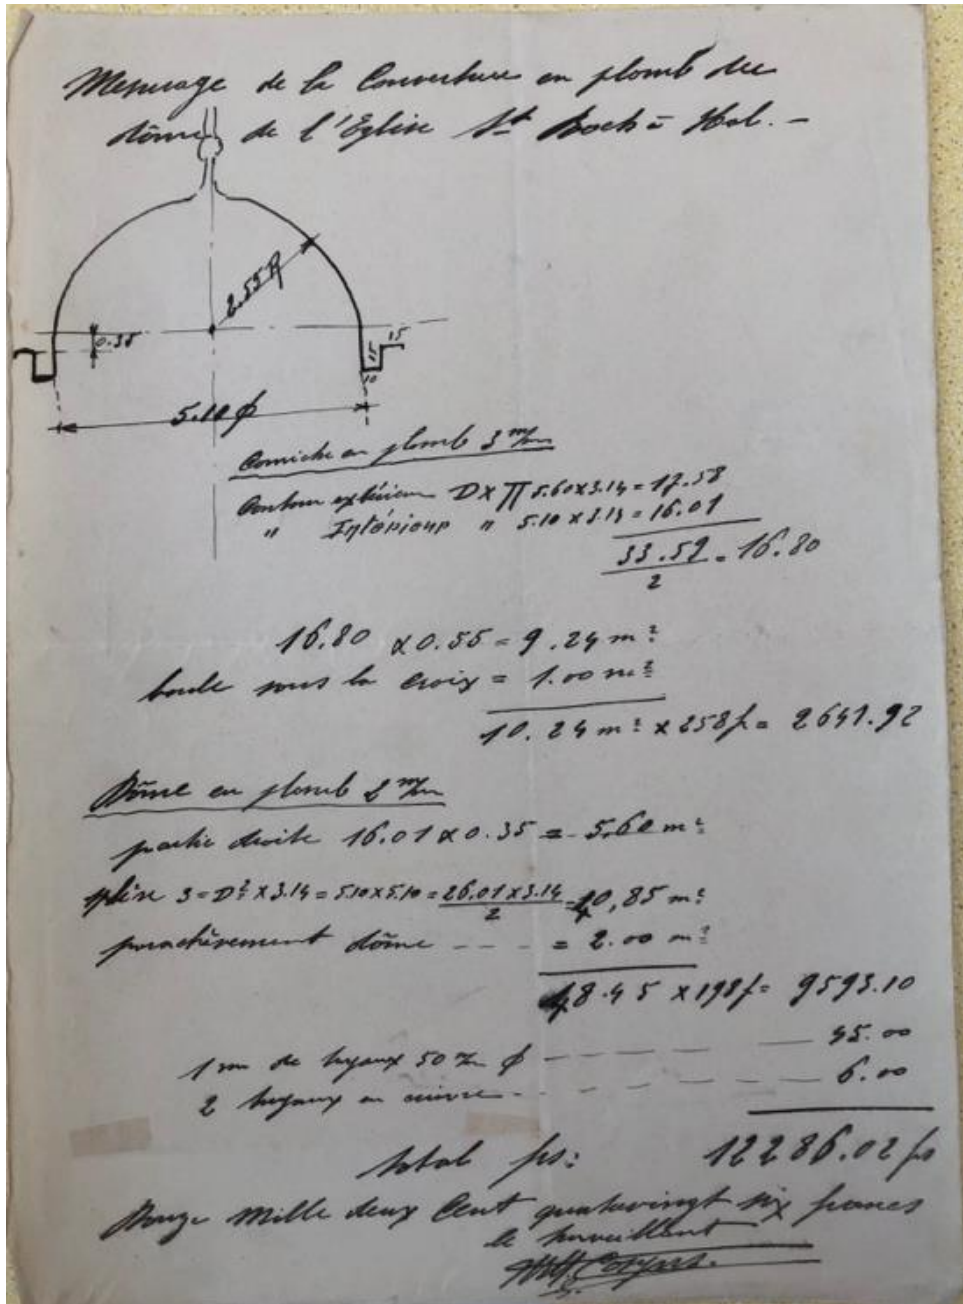 Mesurage de la Couverture en plomb du
dôme de l'Eglise St Roch à Hal. -
2.55 R
0.35
15
15
10
5.10 ϕ
Corniche en plomb 3 m/m
Contour extérieur D x π 5.60 x 3.14 = 17.58
" Intérieur " 5.10 x 3.14 = 16.01
33.59 = 16.80
2
16.80 x 0.55 = 9.24 m²
boule sous la croix = 1.00 m²
10.24 m² x 258 f = 2641.92
Dôme en plomb 2 m/m
partie droite 16.01 x 0.35 = 5.60 m²
sphère S = D² x 3.14 = 5.10 x 5.10 = 26.01 x 3.14 = 40,85 m²
2
parachèvement dôme - - - = 2.00 m²
48.45 x 198 f = 9593.10
1 m de tuyaux 50 m/m ϕ - - - - 45.00
2 tuyaux en cuivre - - - - - 6.00
total frs: 12286.02 frs
Douze Mille deux Cent quatrevingt six francs
le surveillant